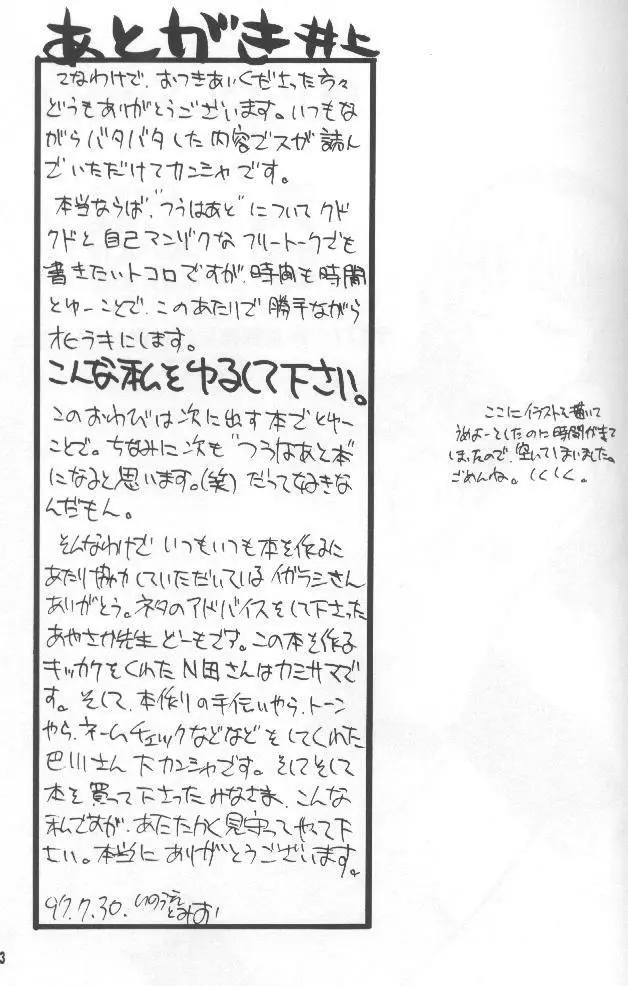 あとがき 井上
てなわけで、おつきあいくださった方々
どうもありがとうございます。いつもな
がらバタバタした内容でスが読ん
でいただけてカンシャです。
本当ならば、“つうはあと”について クド
クドと自己マンゾクなフリートークでも
書きたいトコロですが、時間も時間
とゆーことで、このあたりで勝手ながら
オヒラキにします。
こんな私をゆるして下さい。
このおわびは次に出す本でとゆー
ことで。ちなみに次も“つうはあと本”
になると思います。(笑) だって好きな
んだもん。
そんなわけで いつもいつも本を作るに
あたり協力していただいているイガラシさん
ありがとう。ネタのアドバイスをして下さった
あやさか先生 どーもです。この本を作る
キッカケをくれたN田さんはカミサマで
す。そして、本作りの手伝いやら、トーン
やら、ネームチェックなどなどをしてくれた
巴川さん 大カンシャです。そしてそして
本を買って下さったみなさま、こんな
私ですが、あたたかく見守ってやって下
さい。本当にありがとうございます。
97.7.30. いのうえ
とみお
ここにイラストを描いて
うめよーとしたのに時間が来て
しまったので、空いてしまいました。
ごめんね。しくしく。
3